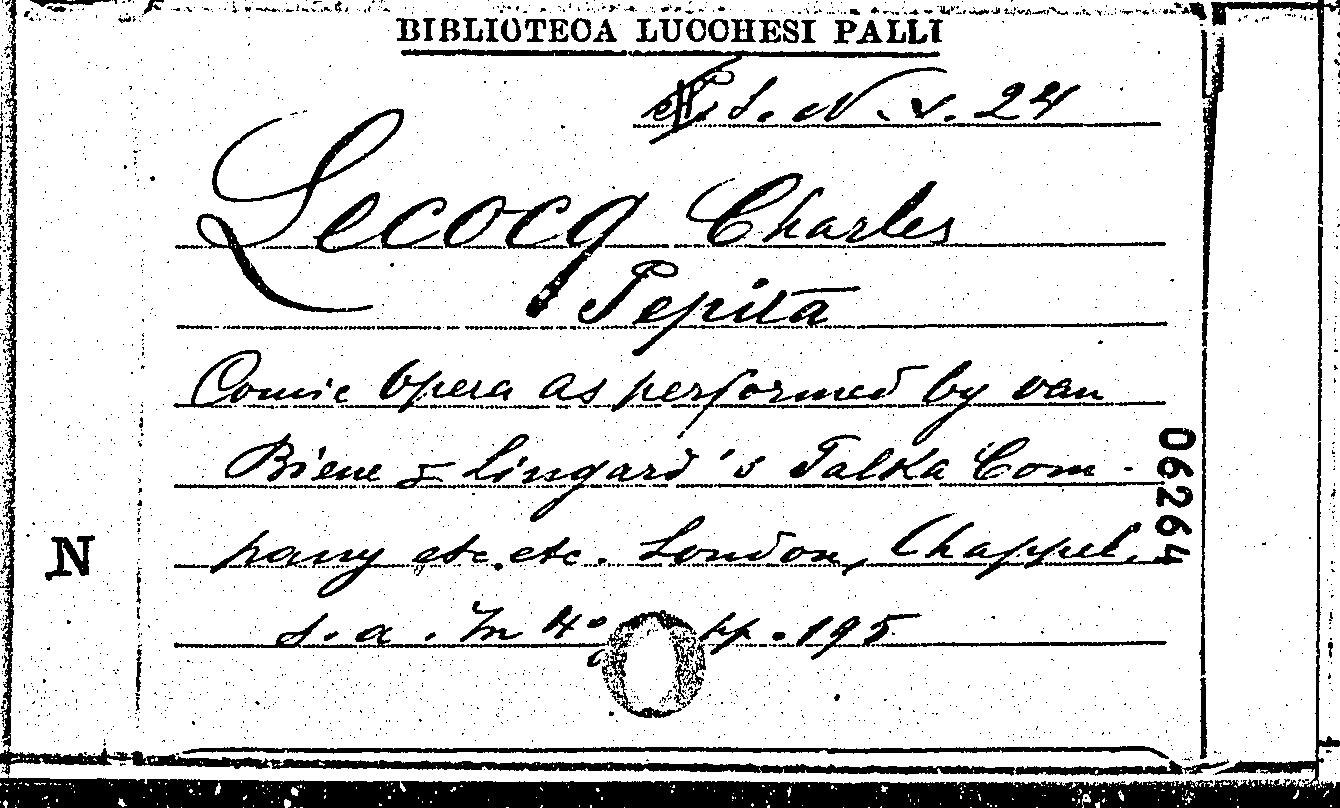 BIBLIOTECA LUCCHESI PALLI
S. N. v. 24
Lecocq Charles
Pepita
Comic Opera as performed by van
Biene & Lingard's Falka Com-
pany etc. etc. London, Chappel,
s. a. In 4º, pp. 195
N
06264